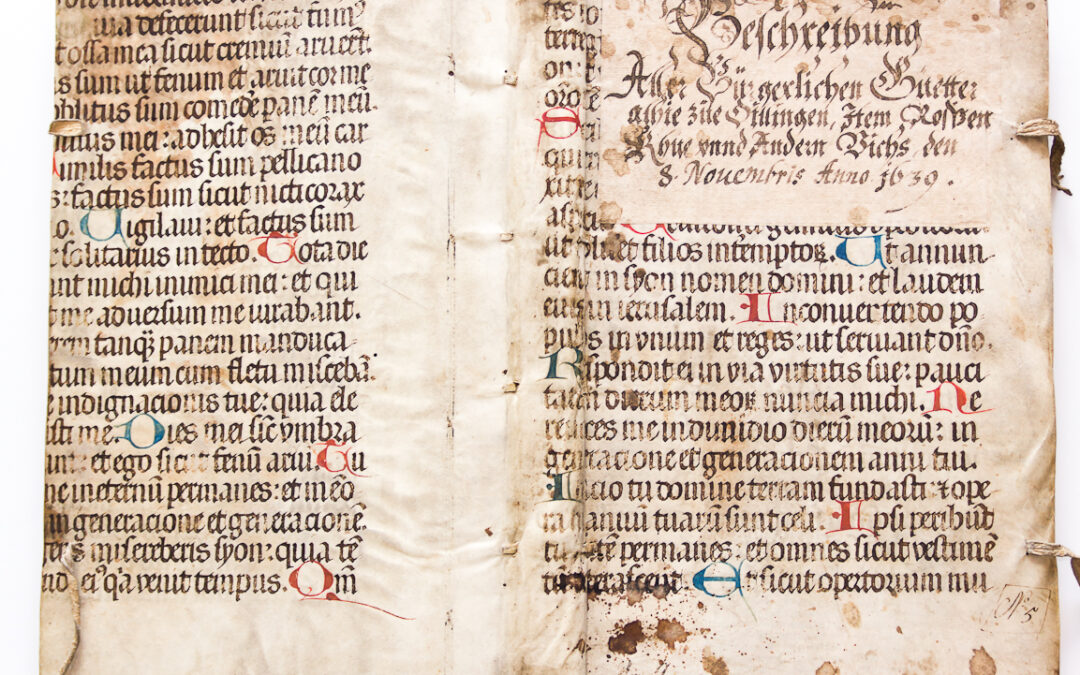 uia defecerunt sicut fumꝰ
t ossa mea sicut cremiū aruert.
s sum ut fenum et aruit cor me
oblitus sum comedē panē meū.
mitus mei: adhesit os meū car
imilis factus sum pellicano
s: factus sum sicut nicticorax
o. Uigilaui: et factus sum
solitarius in tecto. Tota die
ant michi inimici mei: et qui
me aduersum me iurabant.
rem tanqꝫ panem manduca
tum meum cum fletu miscebā.
e indignacionis tue: quia ele
sti me. Dies mei sic̄ vmbra
unt: et ego sicut fenū arui. Tu
ne in eternū permanes: et mēo
in generacione et generacionē.
gens misereberis syon: quia tē
nd eiꝰ qa venit tempus. Qm̄
Beschreibung
Aller Bürgerlichen Güetter
alhie züe Dilingen, Item Rossen
Köue vnnd Andern Vichs, den
8. Nouembris Anno 1639.
ut filios intemptoꝝ. Ut annun
cient in syon nomen domini: et laudem
eius in ierusalem. In conuertendo po
pulos in vnum et reges: ut seruiant dn̄o.
Respondit ei in via virtutis sue: pauci
tatem dierum meoꝝ nuncia michi. Ne
reuoces me in dimidio dierū meorū: in
generacione et generacionem anni tui.
Inicio tu domine terram fundasti: ⁊ ope
ra manuū tuarū sunt celi. Ipsi peribūt
tu autē permanes: et omnes sicut vestimē
tū veterascent. Et sicut opertorium mu
No 5